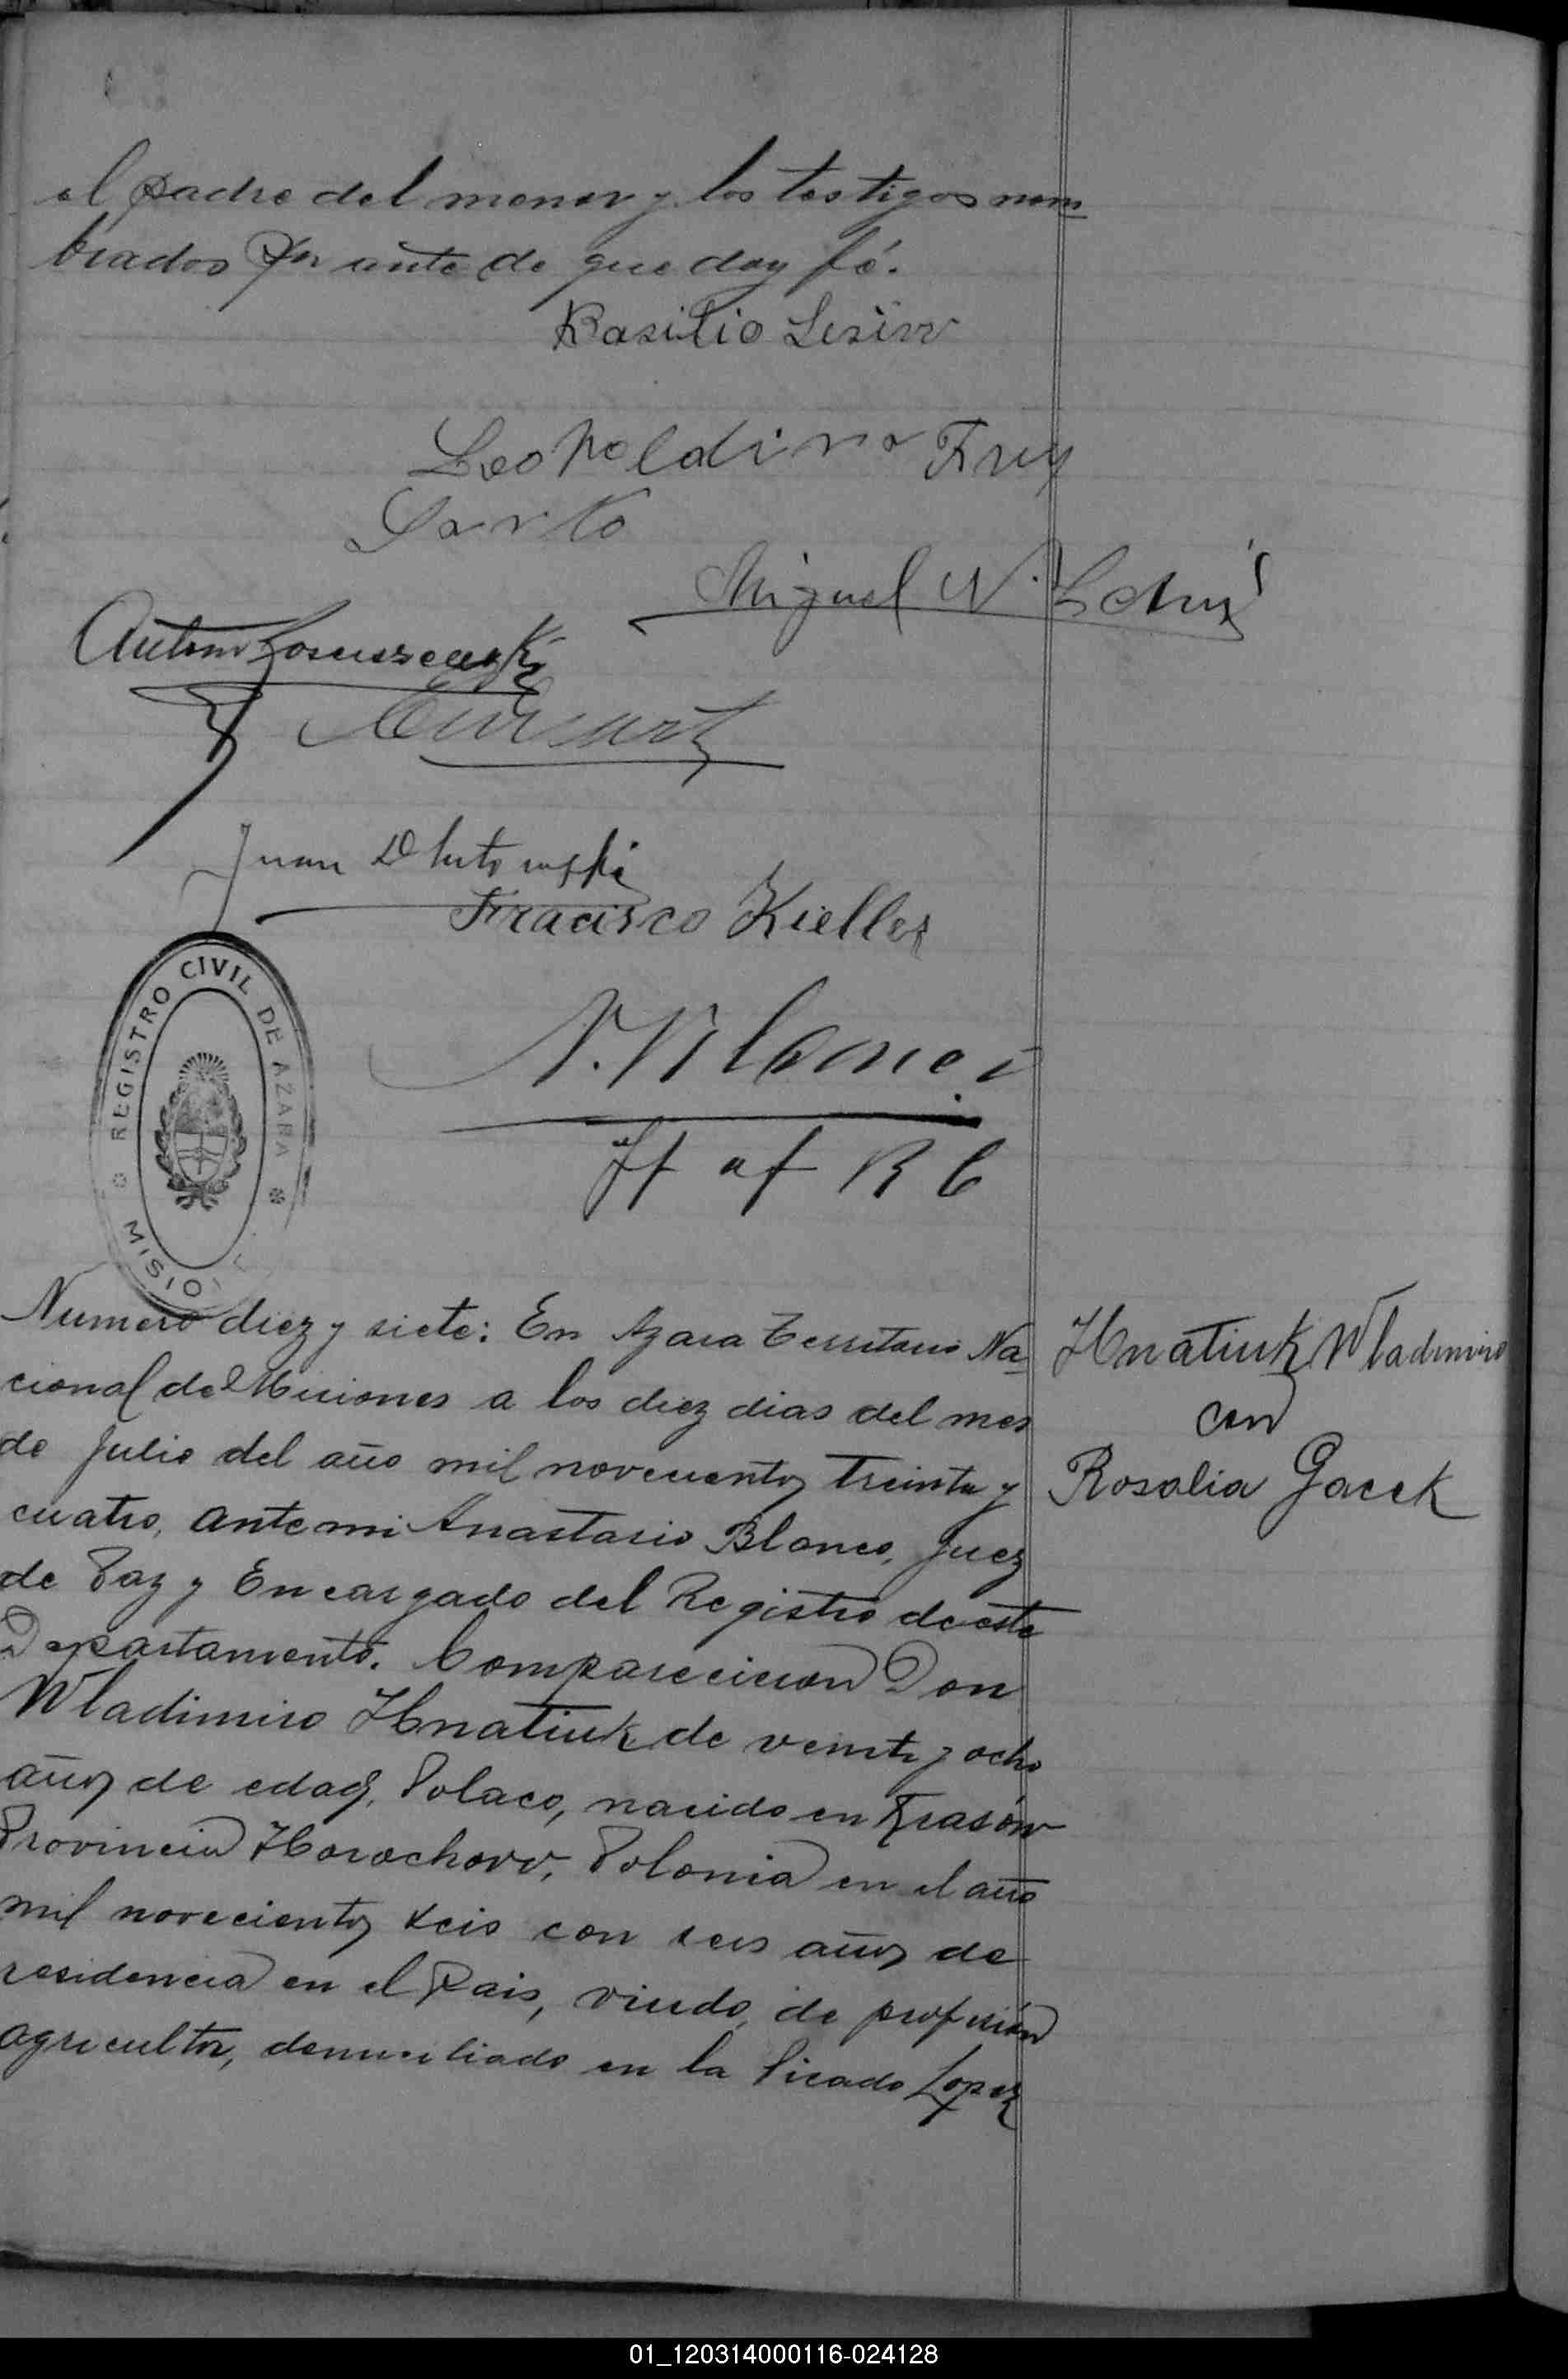 el padre del menor y los testigos nom
brados por ante de que doy fé.
Basilio
Leopoldina Frey
Miguel N.
Anton
Juan Dlutowski
Fracisco Kieller
A. Blanco
REGISTRO CIVIL DE AZARA
MISIO
Numero diez y siete: En Azara Territorio Na
cional de Misiones a los diez dias del mes
de Julio del año mil novecientos treinta y
cuatro, ante mi Anastasio Blanco, Juez
de Paz y Encargado del Registro de este
Departamento. Comparecieron Don
Wladimiro Hnatiuk de veinte y ocho
años de edad, Polaco, nacido en Krasów
Provincia Horochow, Polonia en el año
mil novecientos seis con seis años de
residencia en el Pais, viudo, de profesión
agricultor, domiciliado en la Picada Lopez
Hnatiuk Wladimiro
con
Rosalia Gacek
01_120314000116-024128